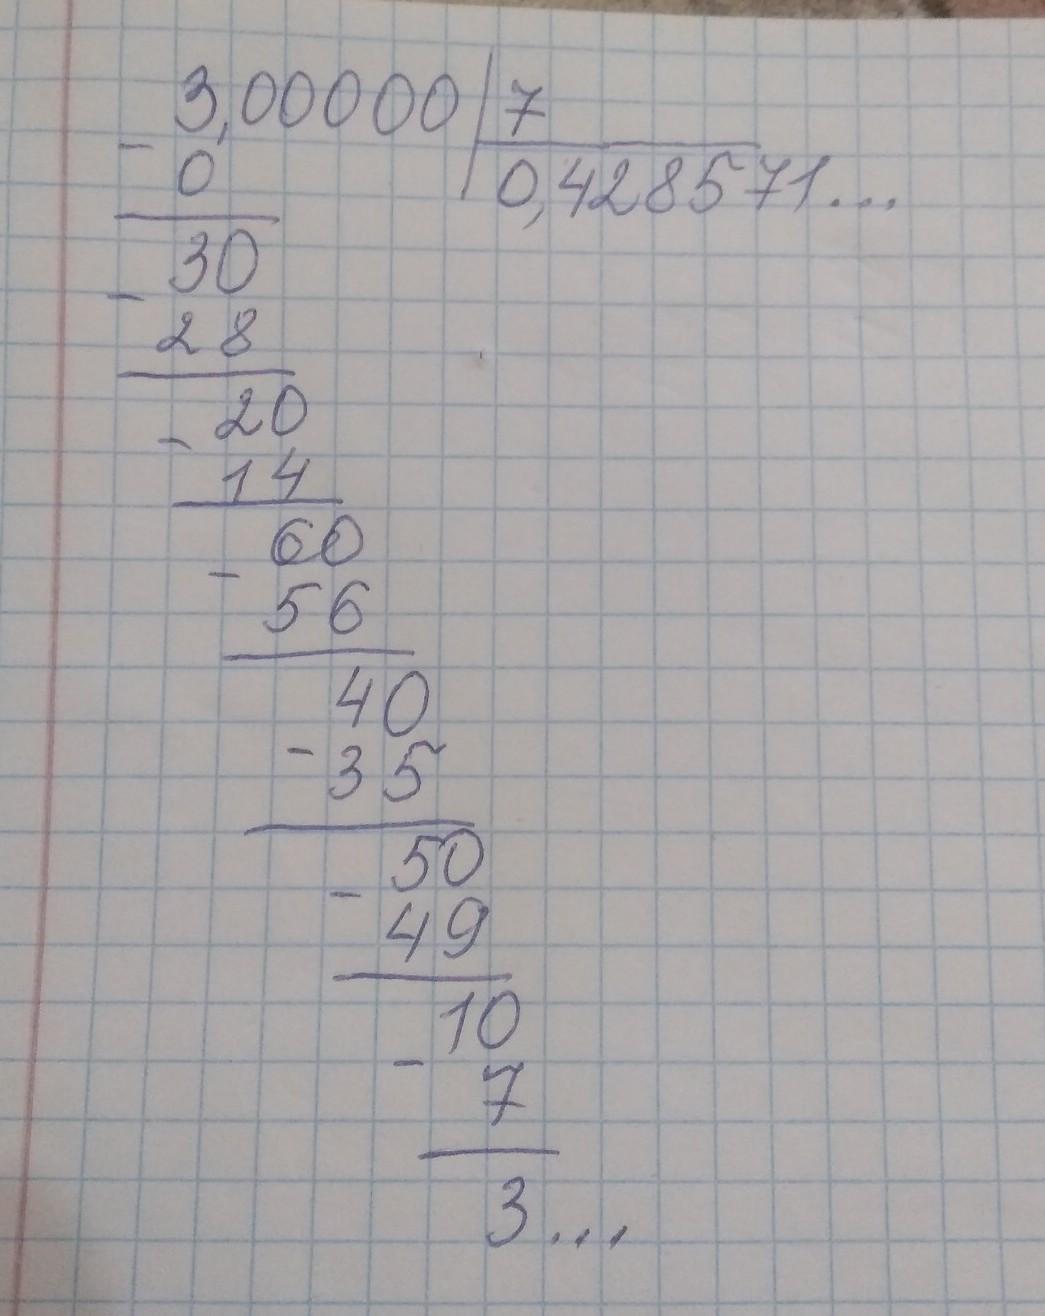 3,00000 7
- 0 0,428571...
30
- 28
20
- 14
60
- 56
40
- 35
50
- 49
10
- 7
3...